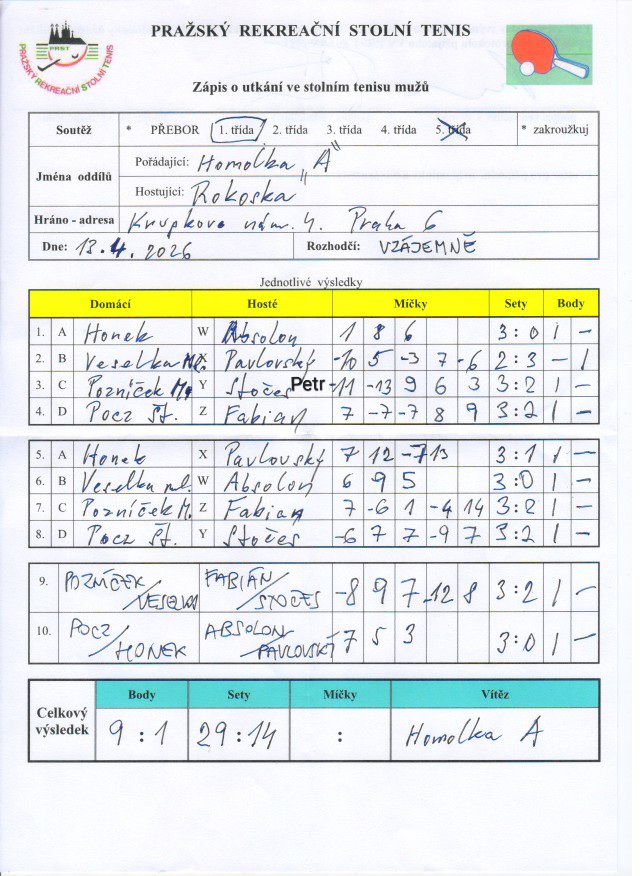 PRAŽSKÝ REKREAČNÍ STOLNÍ TENIS
PRST
PRAŽSKÝ REKREAČNÍ STOLNÍ TENIS
Zápis o utkání ve stolním tenisu mužů
Soutěž * PŘEBOR 1. třída 2. třída 3. třída 4. třída 5. třída * zakroužkuj
Jména oddílů
Pořádající: Homolka "A"
Hostující: Rokoska
Hráno - adresa Krupkovo nám. 4. Praha 6
Dne: 13.4.2026 Rozhodčí: VZÁJEMNĚ
Jednotlivé výsledky
Domácí Hosté Míčky Sety Body
1. A Honek W Absolon 1 8 6 3:0 1 –
2. B Veselka ml. X Pavlovský -10 5 -3 7 -6 2:3 – 1
3. C Pozníček M. Y Stočes Petr -11 -13 9 6 3 3:2 1 –
4. D Pocz St. Z Fabian 7 -7 -7 8 9 3:2 1 –
5. A Honek X Pavlovský 7 12 -7 13 3:1 1 –
6. B Veselka ml. W Absolon 6 9 5 3:0 1 –
7. C Pozníček M. Z Fabian 7 -6 1 -4 14 3:2 1 –
8. D Pocz St. Y Stočes -6 7 7 -9 7 3:2 1 –
9. POZNÍČEK/VESELKA FABIÁN/STOČES -8 9 7 -12 8 3:2 1 –
10. POCZ/HONEK ABSOLON/PAVLOVSKÝ 7 5 3 3:0 1 –
Celkový výsledek
Body Sety Míčky Vítěz
9 : 1 29:14 : Homolka A